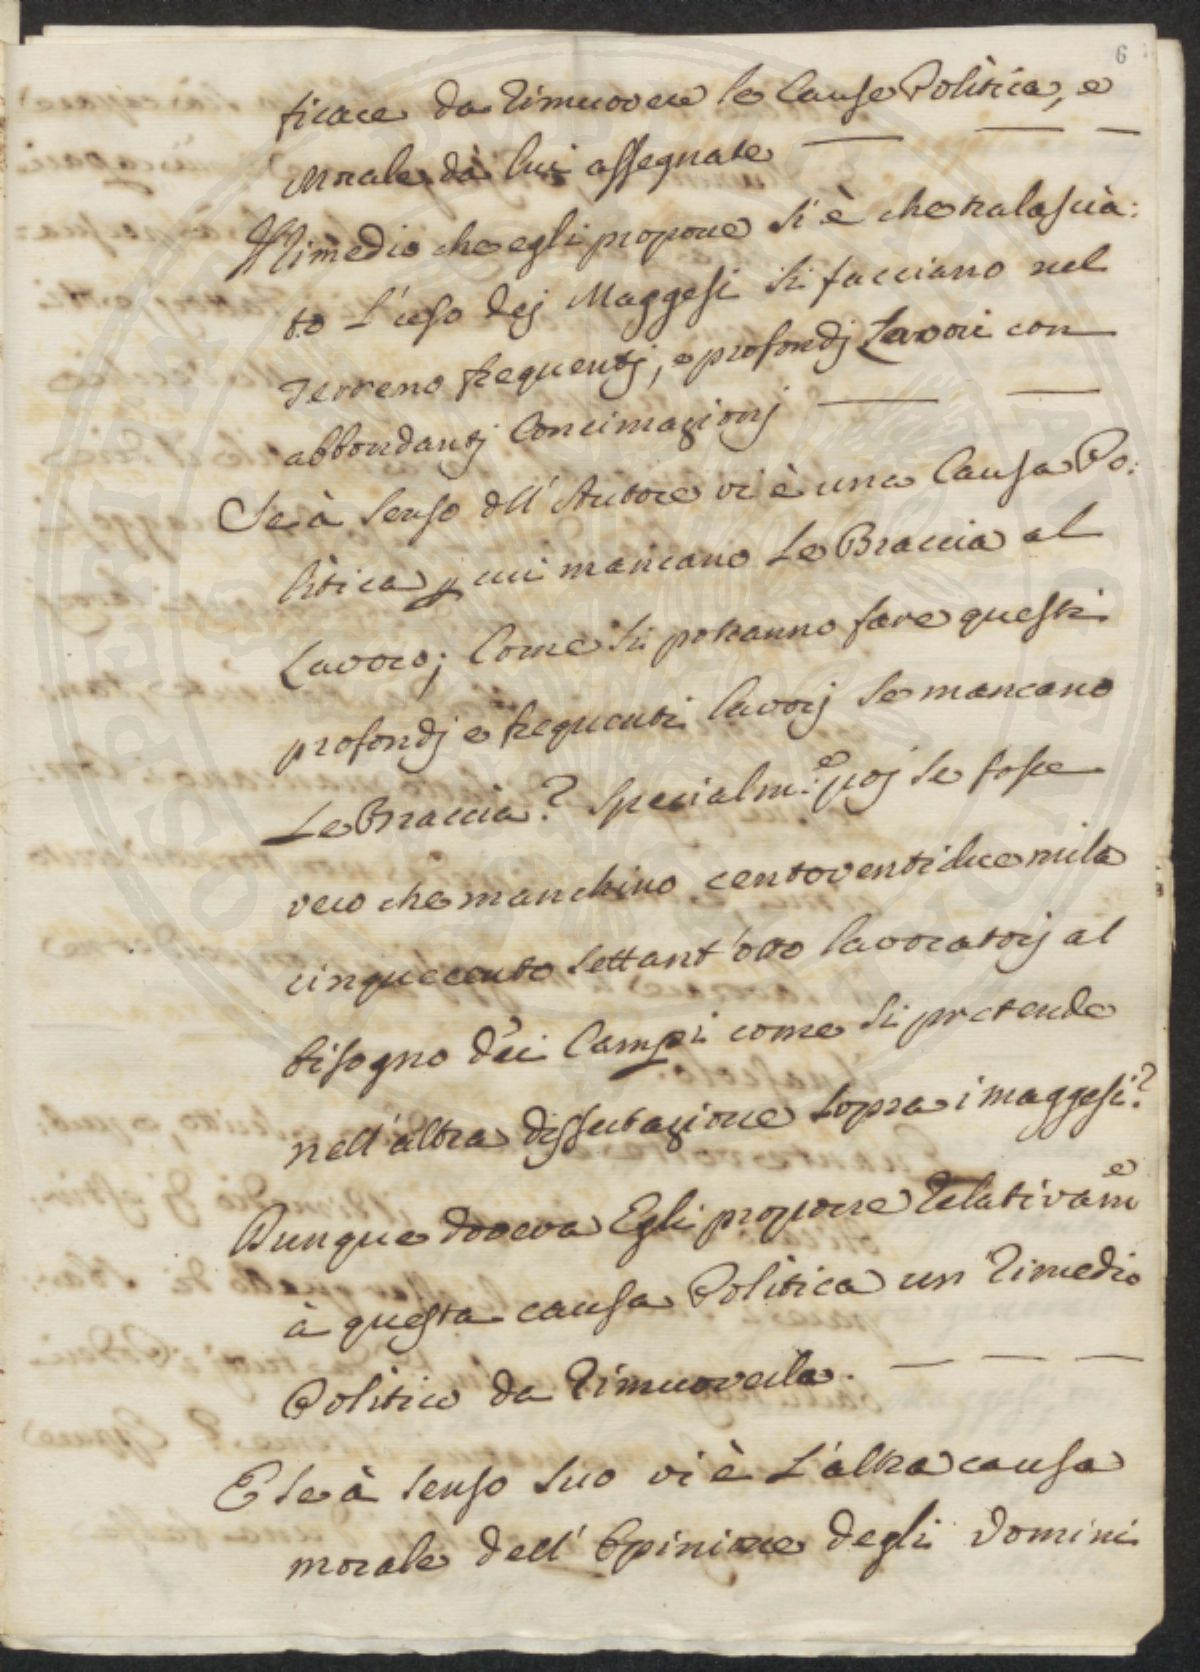 6
ficace da rimuovere le Cause Politica, e
Morale da lui assegnate
Il rimedio che egli propone si è che tralascia:
to l'uso dej Maggesi si facciano nel
Terreno frequentj, e profondj Lavori con
abbondantj Concimazionj
Se à senso dell' Autore vi è una Causa Po:
litica p cui mancano Le Braccia al
Lavoro; Come si potranno fare questi
profondj e frequenti lavorj se mancano
Le Braccia? Specialm:e poj se fosse
vero che manchino centoventiduemila
cinquecento settant'otto lavoratorj al
bisogno dei Campi come si pretende
nell'altra dissertazione sopra i maggesi?
Dunque doveva Egli proporre relativam:e
à questa causa Politica un rimedio
Politico da rimuoverla.
E se à senso suo vi è L'altra causa
morale dell' Opinione degli Domini